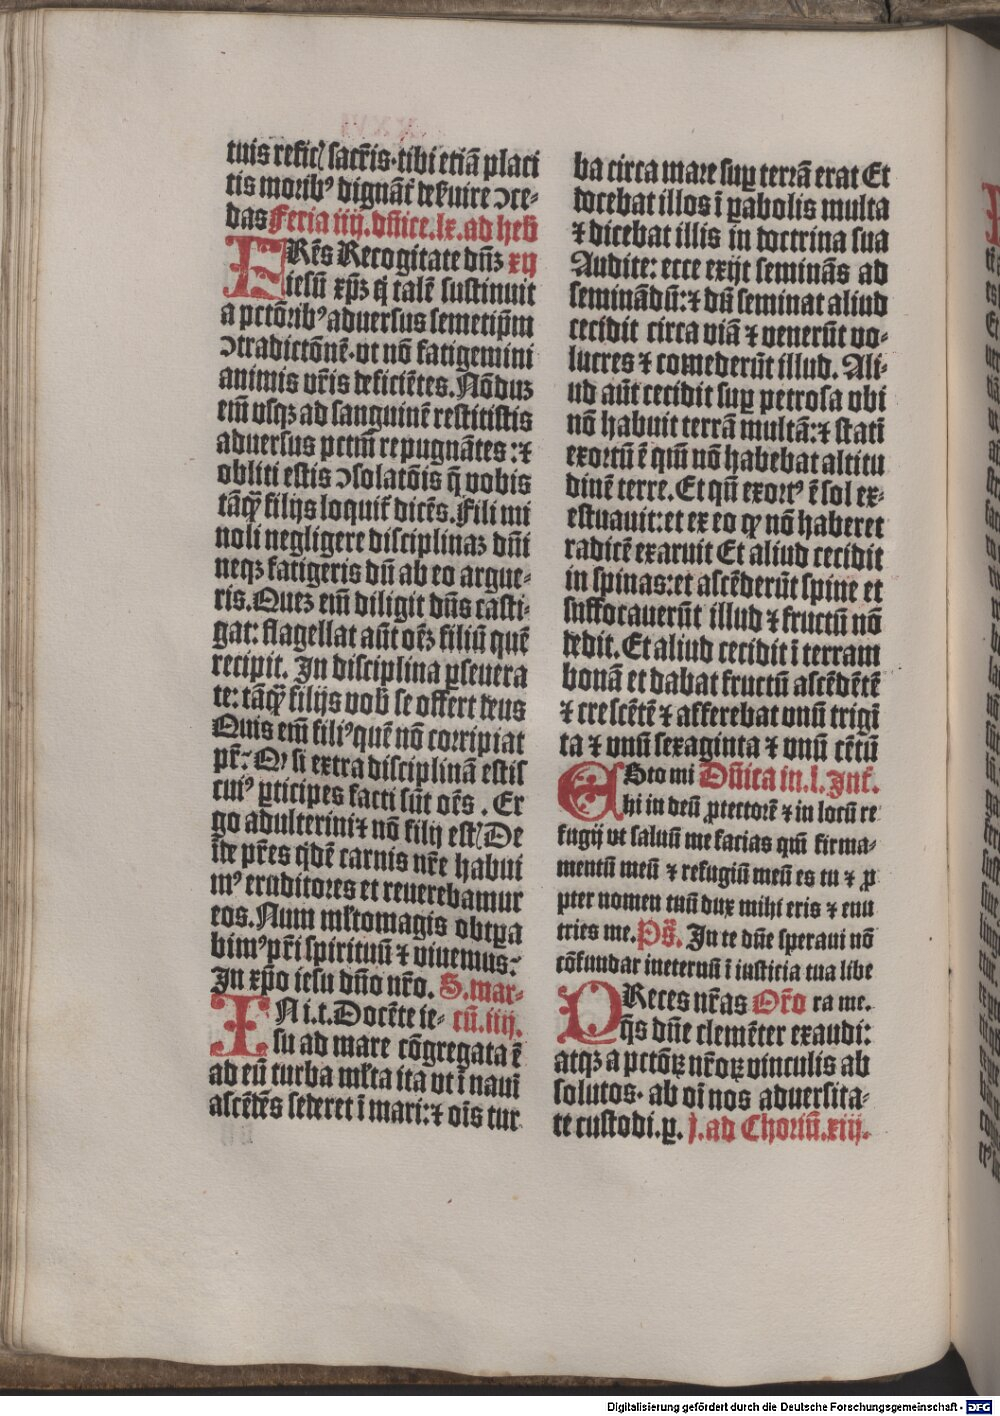 tuis reficꝭ sacr̄is·tibi etiā placi
tis moribꝰ dignāt̄ deſuire ↄce-
das Feria iiij. dn̄ice.lx.ad heb̄
FRēs Recogitate dn̄ꝫ xij
iesū xp̄ꝫ q̄ talē sustinuit
a pctōribꝰ aduersus semetip̄m
ↄtradictōnē·vt nō fatigemini
animis vr̄is deficiētes. Nōduꝫ
em̄ vsqꝫ ad sanguinē restitistis
aduersus pctm̄ repugnātes:⁊
obliti estis ↄsolatōis q̄ vobis
tāqꝙ̄ filijs loquit̄ dicēs. Fili mi
noli negligere disciplinaꝫ dn̄i
neqꝫ fatigeris dū ab eo argue-
ris. Queꝫ em̄ diligit dn̄s casti-
gat: flagellat aūt oēꝫ filiū quē
recipit. In disciplina ꝑseuera
te: tāqꝙ̄ filijs vob̄ se offert deus
Quis em̄ filiꝰ quē nō corripiat
pr̄? Qꝛ si extra disciplinā estis
cuiꝰ ꝑticipes facti sūt oēs. Er
go adulterini⁊ nō filij estꝭ De
īde pr̄es qdē carnis nr̄e habui
mꝰ eruditores et reuerebamur
eos. Num ml̄tomagis obtꝑa
bimꝰ pr̄i spirituū ⁊ viuemus:
In xp̄o iesu dn̄o nr̄o. S. mar-
INi.t. Docēte ie- cū. iiij.
su ad mare cōgregata ē
ad eū turba ml̄ta ita vt ī naui
ascēdēs sederet ī mari:⁊ oīs tur
ba circa mare suꝑ terrā erat Et
docebat illos ī ꝑabolis multa
⁊ dicebat illis in doctrina sua
Audite: ecce exijt seminās ad
seminādū:⁊ dū seminat aliud
cecidit circa viā ⁊ venerūt vo-
lucres ⁊ comederūt illud. Ali-
ud aūt cecidit suꝑ petrosa vbi
nō habuit terrā multā:⁊ statī
exortū ē qm̄ nō habebat altitu
dinē terre. Et qn̄ exortꝰ ē sol ex-
estuauit: et ex eo ꝙ nō haberet
radicē exaruit Et aliud cecidit
in spinas: et ascēderūt spine et
suffocauerūt illud ⁊ fructū nō
dedit. Et aliud cecidit ī terram
bonā et dabat fructū ascēdētē
⁊ crescētē ⁊ afferebat vnū trigī
ta ⁊ vnū sexaginta ⁊ vnū cētū
ESto mi Dn̄ica in. l. Int̄.
hi in deū ꝓtectorē ⁊ in locū re
fugij vt saluū me facias qm̄ firma-
mentū meū ⁊ refugiū meū es tu ⁊ ꝓ
pter nomen tuū dux mihi eris ⁊ enu
tries me. Ps̄. In te dn̄e speraui nō
cōfundar ineternū ī iusticia tua libe
PReces nr̄as Or̄o ra me.
q̄s dn̄e clemēter exaudi:
atqꝫ a pctōꝝ nr̄oꝝ vinculis ab
solutos· ab oī nos aduersita-
te custodi. ꝑ. j. ad Choriū. xiij.